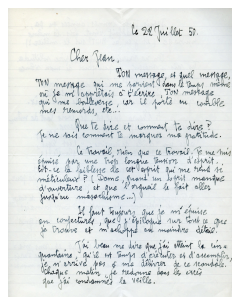 le 22 Juillet 50.
Cher Jean.
TON message, et quel message.
TON message qui me parvient dans le temps même
où je m'apprêtais à t'écrire. TON message
qui me bouleverse, car il porte au comble
mes remords, etc...
Que te dire et comment te dire ?
Je ne sais comment te marquer ma gratitude.
Le travail, rien que ce travail. Je me suis
épuisé par une trop longue tension d'esprit.
Est-ce la faiblesse de cet esprit qui me rend si
méticuleux ? (Donc, quant au esprit, manque
d'ouverture, et que l'orgueil le fait aller
jusqu'au masochisme...)
Il faut toujours que je m'épuise
en conjectures, que j'épilogue sur tout ce que
je trouve et m'achoppe au moindre détail.
J'ai beau me dire que j'ai atteint la cinquantaine,
qu'il est temps d'exécuter et d'accomplir,
je n'arrive pas à me délivrer de ce scandale.
Chaque matin je redonne dans les excès
que j'ai condamnés la veille.